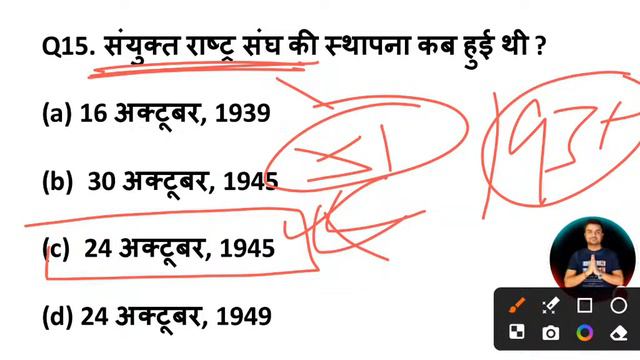 Q15. संयुक्त राष्ट्र संघ की स्थापना कब हुई थी ?
(a) 16 अक्टूबर, 1939
(b) 30 अक्टूबर, 1945
(c) 24 अक्टूबर, 1945
(d) 24 अक्टूबर, 1949
51
193+